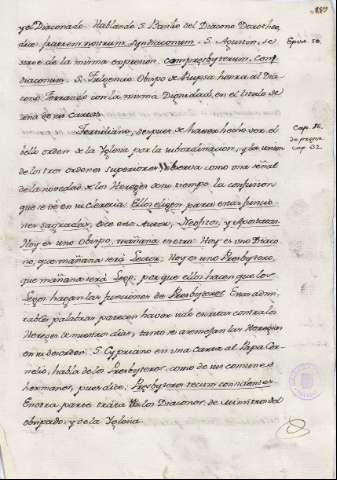 y el Diaconado. Hablando S. Basilio del Diacono Doroteo,
dice fratrem nostrum Syndiaconum. S. Agustin, se
sirve de la misma expresion, compresbyterum, Con
diaconum. S. Fulgencio Obispo de Ruspa honra al Dia
cono Ferrando con la misma Dignidad, en el titulo de
una de sus Cartas.
Tertuliano, despues de haver hecho ver el
bello orden de la Yglesia por la subordinacion, y la union
de los tres ordenes superiores observa como una señal
de la novedad de los Hereges de su tiempo la confusion
que se vé en su Clerecia. Ellos eligen para estas funcio
nes sagradas, dice este Autor, Neofitos, y Apostatas.
Hoy es uno Obispo, mañana es otro. Hoy es uno Diaco
no, que mañana será Lector. Hoy es uno Presbytero,
que mañana será Lego; por que ellos hacen que los
Legos hagan las funciones de Presbyteros. Estas admi
rables palabras parecen haver sido escritas contra los
Hereges de nuestros dias, tanto se asemejan los Hereges
en su desorden. S. Cypriano en una carta al Papa Cor
nelio, habla de los Presbyteros, como de sus comunes
hermanos, pues dice, Presbyteros tecum considentes.
En otra parte trata á los Diaconos, de Ministros del
obispado, y de la Yglesia.
Epist. 50.
Cap. 41.
de prescr.
cap. 32.